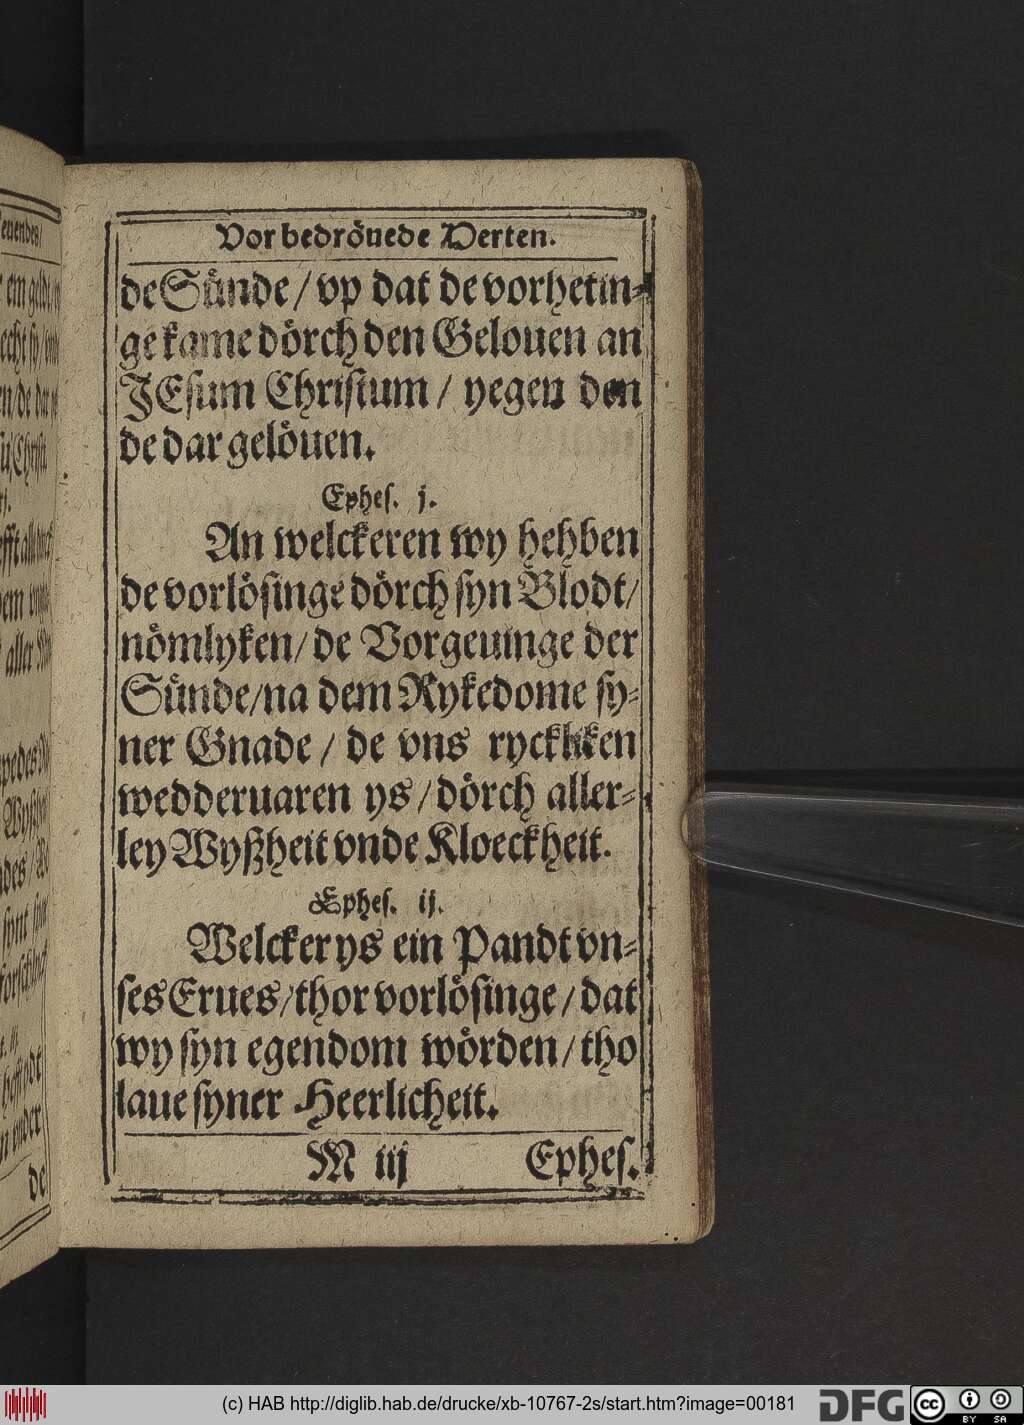 Vor bedröuede Herten.
de Sünde / vp dat de vorhetin-
ge kame dörch den Gelouen an
JEsum Christum / yegen den
de dar gelöuen.
Ephes. j.
An welckeren wy hebben
de vorlösinge dörch syn Blodt /
nömlyken / de Vorgeuinge der
Sünde / na dem Rykedome sy-
ner Gnade / de vns rycklyken
wedderuaren ys / dörch aller-
ley Wyßheit vnde Kloeckheit.
Ephes. ij.
Welcker ys ein Pandt vn-
ses Erues / thor vorlösinge / dat
wy syn egendom wörden / tho
laue syner Heerlicheit.
M iij Ephes.
(c) HAB http://diglib.hab.de/drucke/xb-10767-2s/start.htm?image=00181
DFG
cc
BY SA